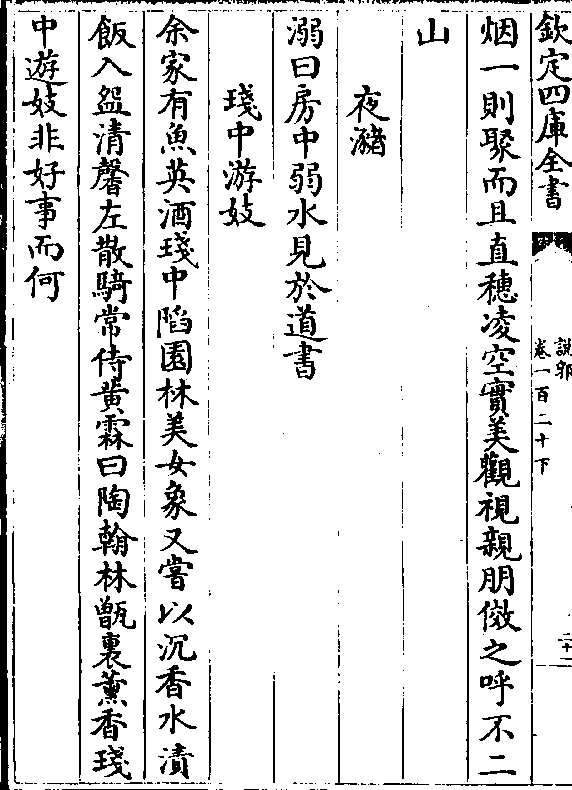 欽定四庫全書
說郛
卷一百二十下
二十二
烟一則聚而且直穗凌空實美觀視親朋傚之呼不二
山
夜瀦
溺曰房中弱水見於道書
琖中游妓
余家有魚英酒琖中䧟園林美女象又嘗以沉香水漬
飯入盌清馨左散騎常侍黄霖曰陶翰林甑裏薫香琖
中遊妓非好事而何